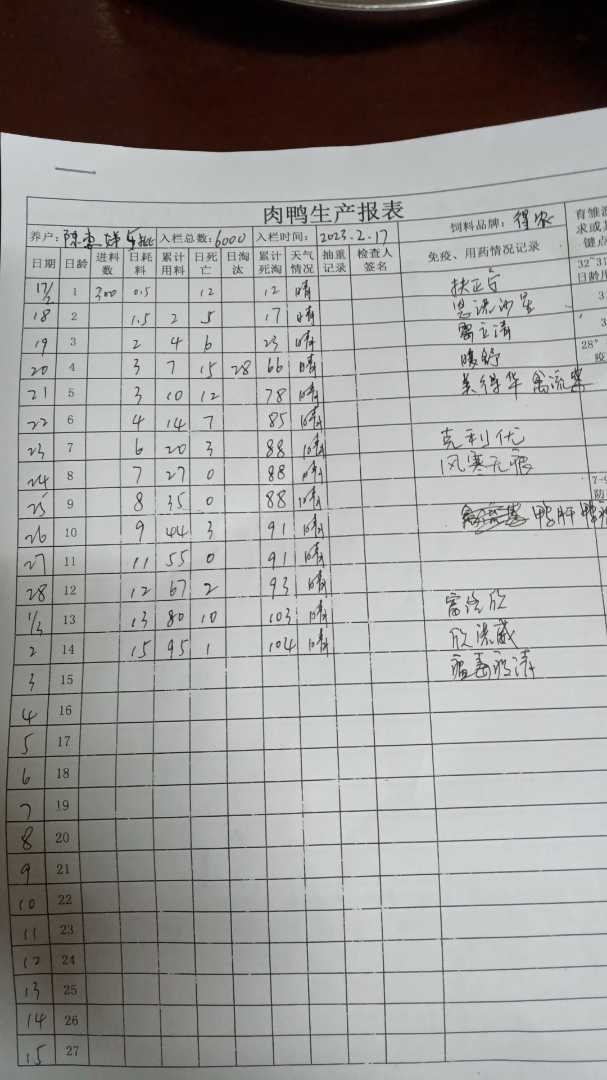 肉鸭生产报表
养户: 陈 入栏总数: 6000 入栏时间: 2023.2.17 饲料品牌: 得农 育雏温
日期 日龄 进料数 日耗料 累计用料 日死亡 日淘汰 累计死淘 天气情况 抽重记录 检查人签名 免疫、用药情况记录 求或 键点
17/2 1 300 0.5 12 12 晴 扶正 32~31 日龄
18 2 1.5 2 5 17 晴 恩 3
19 3 2 4 6 23 晴 3
20 4 3 7 15 28 66 晴 28°
21 5 3 10 12 78 晴 禽流
22 6 4 14 7 85 晴
23 7 6 20 3 88 晴 克利优
24 8 7 27 0 88 晴 风寒无痕
25 9 8 35 0 88 晴 防
26 10 9 44 3 91 晴 鸭肝 鸭
27 11 11 55 0 91 晴
28 12 12 67 2 93 晴
1/3 13 13 80 10 103 晴
2 14 15 95 1 104 晴
3 15
4 16
5 17
6 18
7 19
8 20
9 21
10 22
11 23
12 24
13 25
14 26
15 27